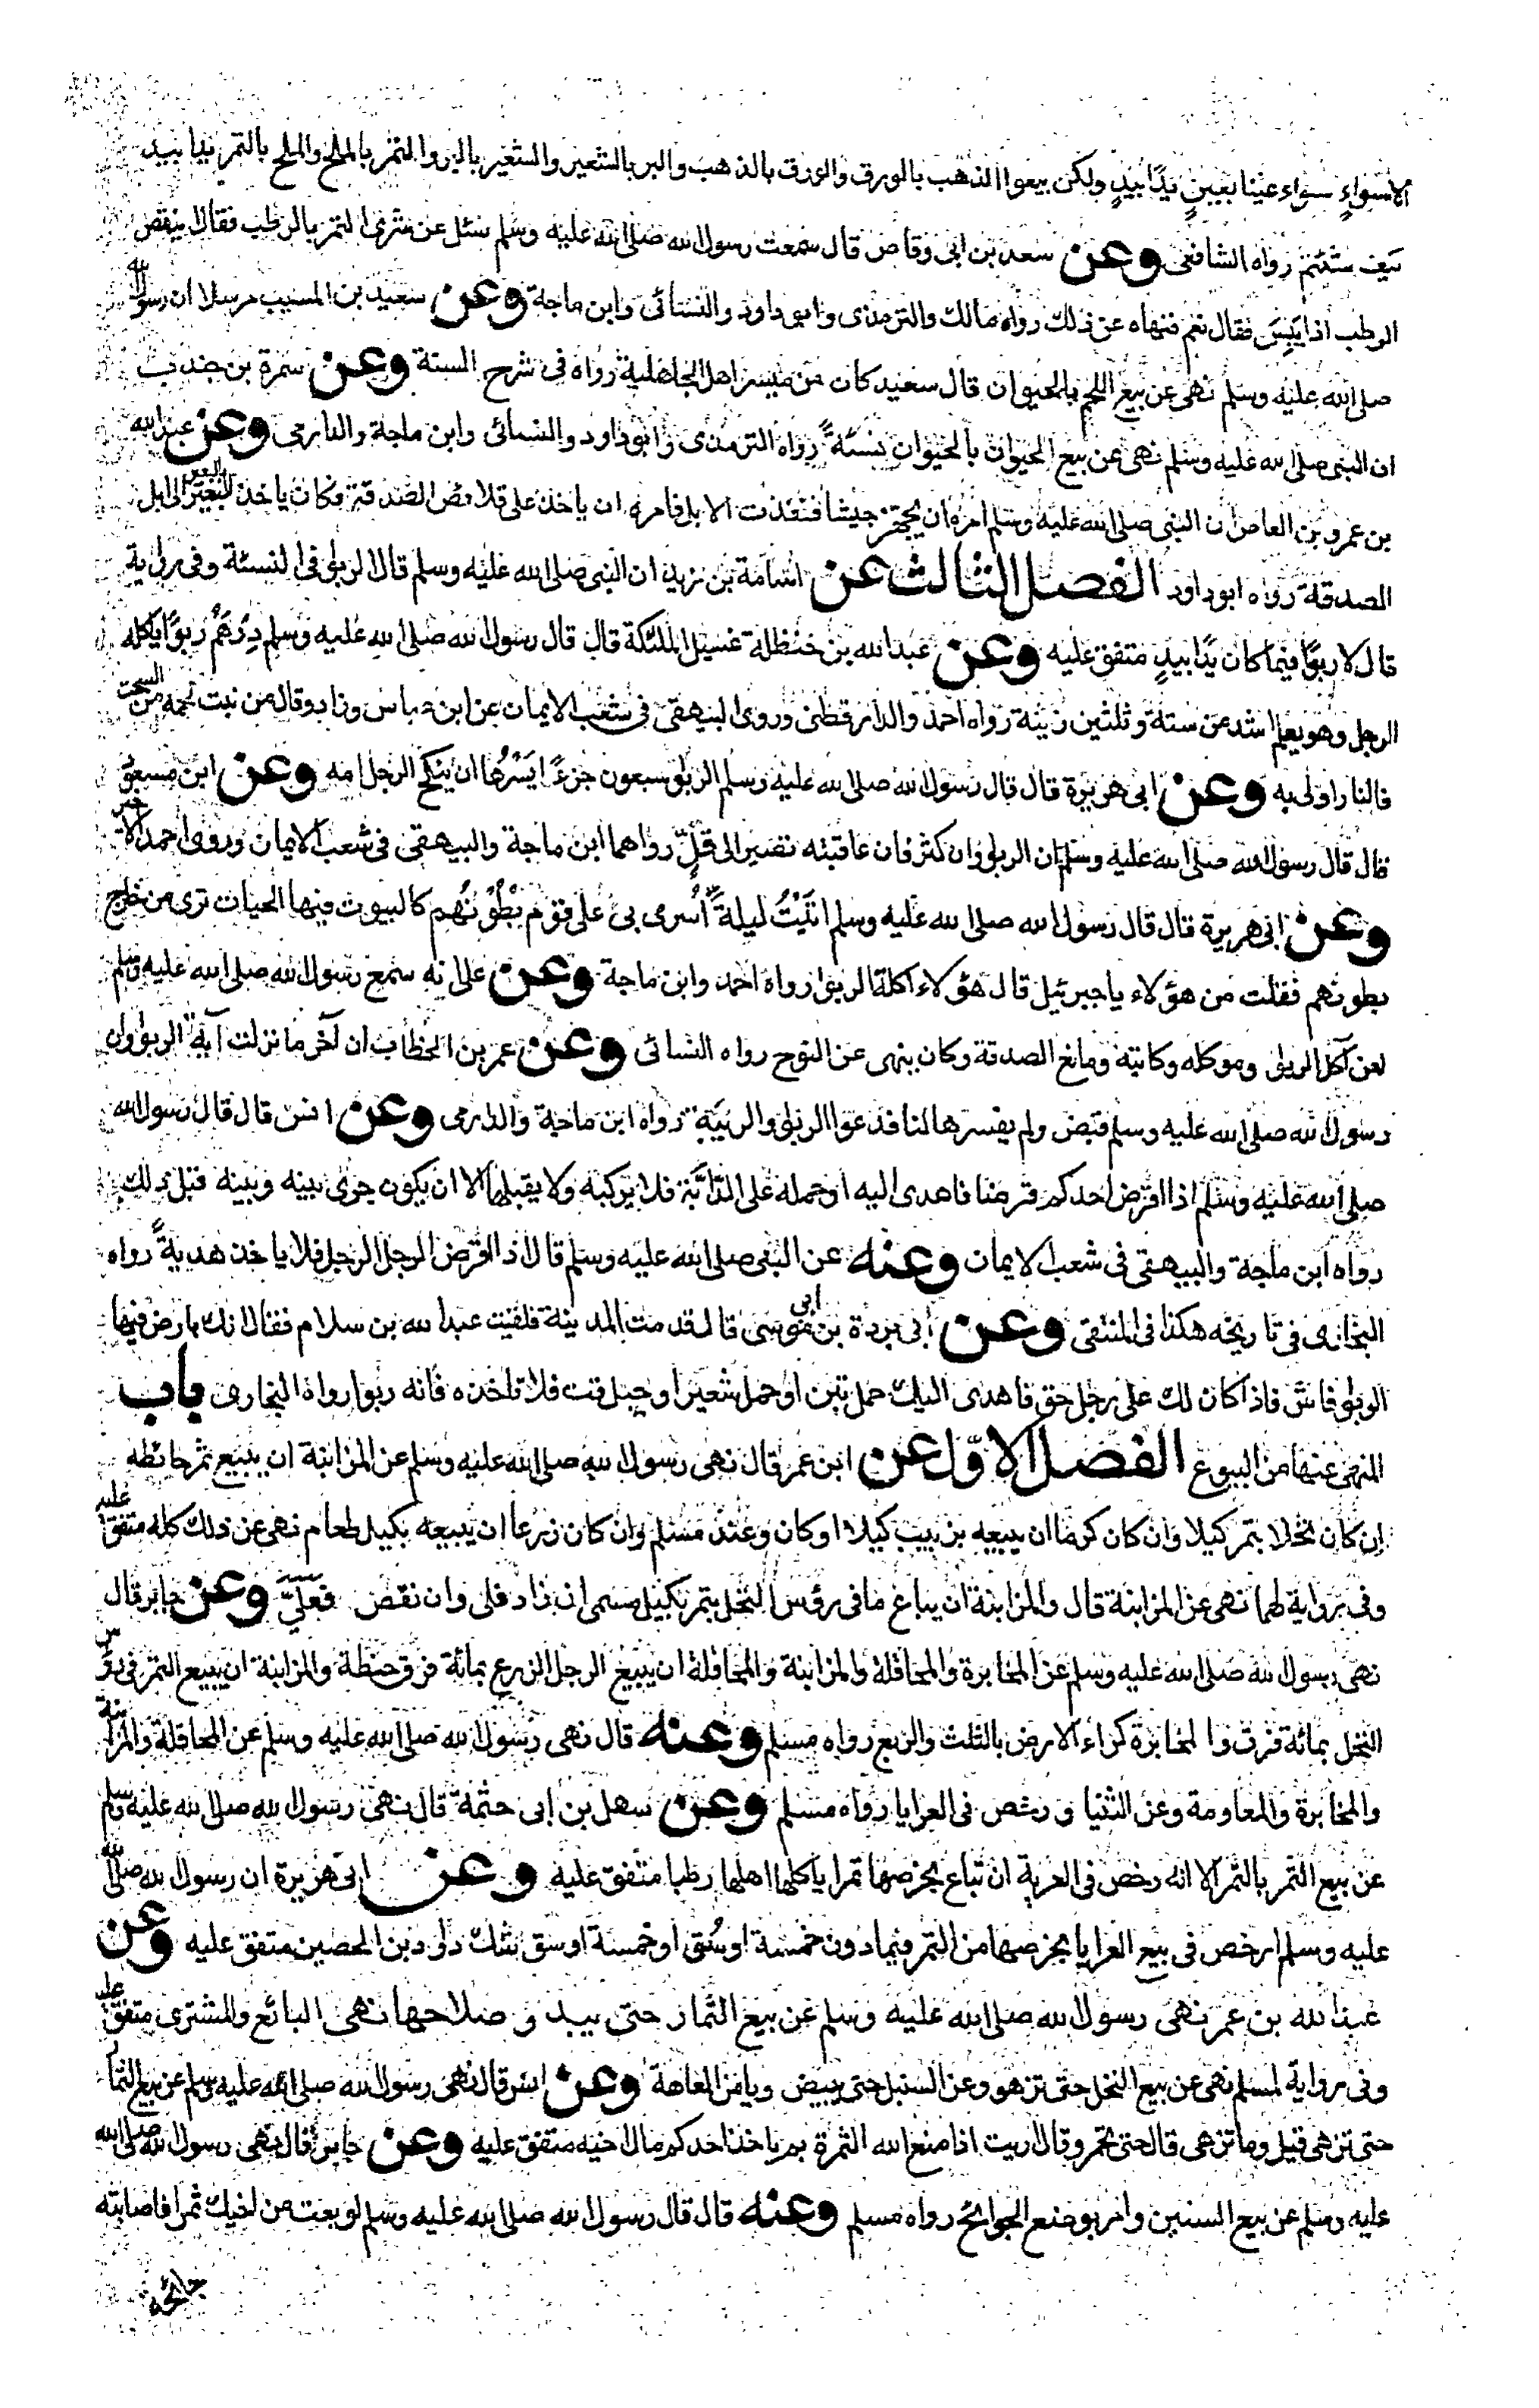 الا سواء سواء عينا بعين يدا بيد ولكن بيعوا الذهب بالورق والورق بالذهب والبر بالشعير والشعير بالبر والتمر بالملح والملح بالتمر يدا بيد
كيف شئتم رواه الشافعى وعن سعد بن ابى وقاص قال سمعت رسول الله صلى الله عليه وسلم سئل عن شرى التمر بالرطب فقال اينقص
الرطب اذا يبس فقال نعم فنهاه عن ذلك رواه مالك والترمذى وابو داود والنسائى وابن ماجة وعن سعيد بن المسيب مرسلا ان رسول الله
صلى الله عليه وسلم نهى عن بيع اللحم بالحيوان قال سعيد كان من ميسر اهل الجاهلية رواه فى شرح السنة وعن سمرة بن جندب
ان النبى صلى الله عليه وسلم نهى عن بيع الحيوان بالحيوان نسئة رواه الترمذى وابو داود والنسائى وابن ماجة والدارمى وعن عبد الله
بن عمرو بن العاص ان النبى صلى الله عليه وسلم امره ان يجهز جيشا فنفذت الابل فامره ان ياخذ على قلائص الصدقة فكان ياخذ البعير بالبعيرين الى ابل
الصدقة رواه ابو داود الفصل الثالث عن اسامة بن زيد ان النبى صلى الله عليه وسلم قال الربوا فى النسئة وفى رواية
قال لا ربوا فيما كان يدا بيد متفق عليه وعن عبد الله بن حنظلة غسيل الملئكة قال قال رسول الله صلى الله عليه وسلم درهم ربوا ياكله
الرجل وهو يعلم اشد من ستة وثلثين زنية رواه احمد والدارقطنى وروى البيهقى فى شعب الايمان عن ابن عباس وزاد وقال من نبت لحمه من السحت
فالنار اولى به وعن ابى هريرة قال قال رسول الله صلى الله عليه وسلم الربوا سبعون جزءا ايسرها ان ينكح الرجل امه وعن ابن مسعود
قال قال رسول الله صلى الله عليه وسلم ان الربوا وان كثر فان عاقبته تصير الى قل رواهما ابن ماجة والبيهقى فى شعب الايمان وروى احمد الاخير
وعن ابى هريرة قال قال رسول الله صلى الله عليه وسلم اتيت ليلة اسرى بى على قوم بطونهم كالبيوت فيها الحيات ترى من خارج
بطونهم فقلت من هؤلاء يا جبرئيل قال هؤلاء اكلة الربوا رواه احمد وابن ماجة وعن على انه سمع رسول الله صلى الله عليه وسلم
لعن آكل الربوا وموكله وكاتبه ومانع الصدقة وكان ينهى عن النوح رواه النسائى وعن عمر بن الخطاب ان آخر ما نزلت آية الربوا وان
رسول الله صلى الله عليه وسلم قبض ولم يفسرها لنا فدعوا الربوا والريبة رواه ابن ماجة والدارمى وعن انس قال قال رسول الله
صلى الله عليه وسلم اذا اقرض احدكم قرضا فاهدى اليه او حمله على الدابة فلا يركبه ولا يقبلها الا ان يكون جرى بينه وبينه قبل ذلك
رواه ابن ماجة والبيهقى فى شعب الايمان وعنه عن النبى صلى الله عليه وسلم قال اذا اقرض الرجل الرجل فلا ياخذ هدية رواه
البخارى فى تاريخه هكذا فى المنتقى وعن ابى بردة بن ابى موسى قال قدمت المدينة فلقيت عبد الله بن سلام فقال انك بارض فيها
الربوا فاش فاذا كان لك على رجل حق فاهدى اليك حمل تبن او حمل شعير او حبل قت فلا تاخذه فانه ربوا رواه البخارى باب
المنهى عنها من البيوع الفصل الاول عن ابن عمر قال نهى رسول الله صلى الله عليه وسلم عن المزابنة ان يبيع ثمر حائطه
ان كان نخلا بتمر كيلا وان كان كرما ان يبيعه بزبيب كيلا او كان وعند مسلم وان كان زرعا ان يبيعه بكيل طعام نهى عن ذلك كله متفق عليه
وفى رواية لهما نهى عن المزابنة قال والمزابنة ان يباع ما فى رؤس النخل بتمر بكيل مسمى ان زاد فلى وان نقص فعلى وعن جابر قال
نهى رسول الله صلى الله عليه وسلم عن المخابرة والمحاقلة والمزابنة والمحاقلة ان يبيع الرجل الزرع بمائة فرق حنطة والمزابنة ان يبيع التمر فى رؤس
النخل بمائة فرق والمخابرة كراء الارض بالثلث والربع رواه مسلم وعنه قال نهى رسول الله صلى الله عليه وسلم عن المحاقلة والمزابنة
والمخابرة والمعاومة وعن الثنيا ورخص فى العرايا رواه مسلم وعن سهل بن ابى حثمة قال نهى رسول الله صلى الله عليه وسلم
عن بيع التمر بالتمر الا انه رخص فى العرية ان تباع بخرصها تمرا ياكلها اهلها رطبا متفق عليه وعن ابى هريرة ان رسول الله صلى الله
عليه وسلم ارخص فى بيع العرايا بخرصها من التمر فيما دون خمسة اوسق او خمسة اوسق شك داود بن الحصين متفق عليه وعن
عبد الله بن عمر نهى رسول الله صلى الله عليه وسلم عن بيع الثمار حتى يبدو صلاحها نهى البائع والمشترى متفق عليه
وفى رواية لمسلم نهى عن بيع النخل حتى تزهو وعن السنبل حتى يبيض ويامن العاهة وعن انس قال نهى رسول الله صلى الله عليه وسلم عن بيع الثمار
حتى تزهى قيل وما تزهى قال حتى تحمر وقال اريت اذا منع الله الثمرة بم ياخذ احدكم مال اخيه متفق عليه وعن جابر قال نهى رسول الله صلى الله
عليه وسلم عن بيع السنين وامر بوضع الجوائح رواه مسلم وعنه قال قال رسول الله صلى الله عليه وسلم لو بعت من اخيك ثمرا فاصابته
جائحة